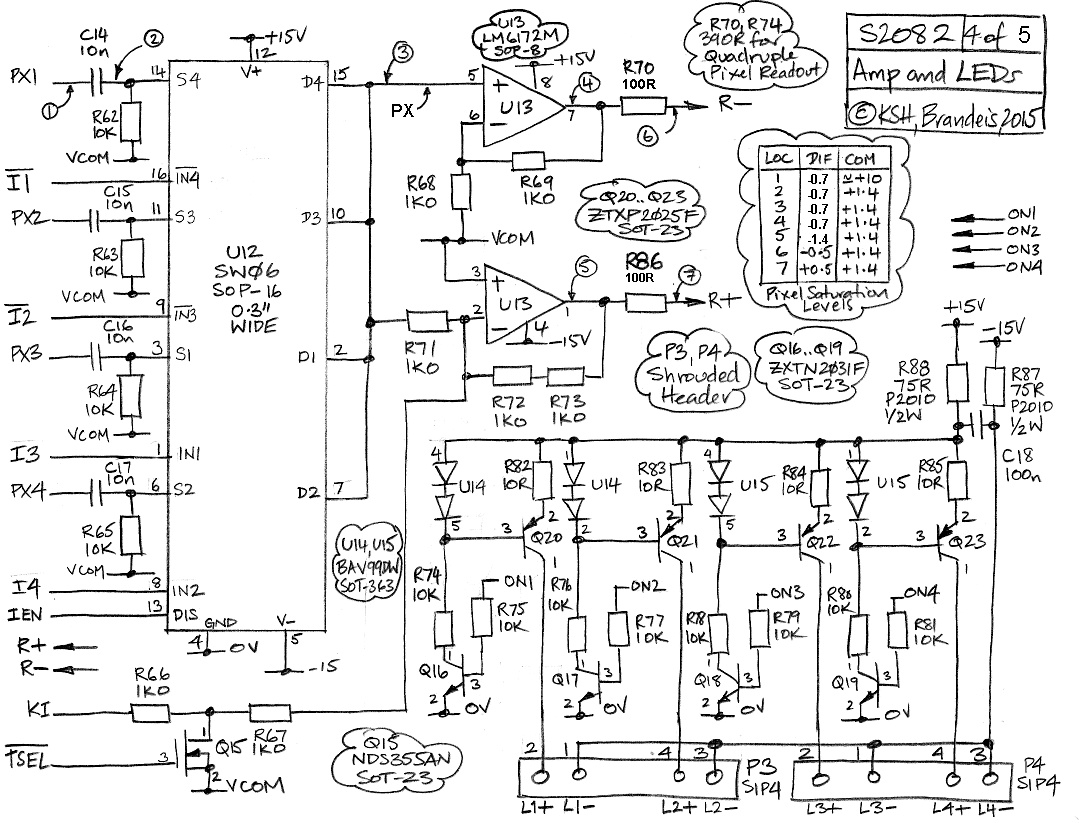 S2082 4 of 5
Amp and LEDs
© KSH, Brandeis, 2015
U13
LM6172M
SOP-8
R70, R74
390R for
Quadruple
Pixel Readout
C14
10n
2
+15V
12
V+
PX1
1
14
S4
R62
10K
VCOM
I1
16
IN4
C15
10n
PX2
11
S3
R63
10K
VCOM
I2
9
IN3
C16
10n
PX3
3
S1
R64
10K
VCOM
I3
1
IN1
C17
10n
PX4
6
S2
R65
10K
VCOM
I4
8
IN2
IEN
13
DIS
GND
4
0V
V-
5
-15
U12
SW06
SOP-16
0.3"
WIDE
D4
15
D3
10
D1
2
D2
7
3
PX
5
+
6
-
U13
+15V
8
7
4
R70
100R
6
R-
R68
1K0
R69
1K0
VCOM
Q20..Q23
ZTXP2025F
SOT-23
3
+
2
-
U13
4
-15V
1
5
R86
100R
7
R+
R71
1K0
R72
1K0
R73
1K0
LOC DIF COM
1 -0.7 ≃+10
2 -0.7 +1.4
3 -0.7 +1.4
4 -0.7 +1.4
5 -1.4 +1.4
6 -0.5 +1.4
7 +0.5 +1.4
Pixel Saturation
Levels
ON1
ON2
ON3
ON4
P3, P4
Shrouded
Header
Q16..Q19
ZXTN2031F
SOT-23
+15V
-15V
R88
75R
P2010
1/2W
R87
75R
P2010
1/2W
C18
100n
U14, U15
BAV99DW
SOT-363
4
U14
5
R82
10R
2
3
Q20
1
1
U14
2
R83
10R
2
3
Q21
1
4
U15
5
R84
10R
2
3
Q22
1
1
U15
2
R85
10R
2
3
Q23
1
R74
10K
ON1
R75
10K
Q16
1
3
2
0V
R76
10K
ON2
R77
10K
Q17
1
3
2
0V
R78
10K
ON3
R79
10K
Q18
1
3
2
0V
R80
10K
ON4
R81
10K
Q19
1
3
2
0V
R+
R-
R66
1K0
KI
R67
1K0
TSEL
3
1
Q15
2
VCOM
Q15
NDS355AN
SOT-23
2 1 4 3
P3
SIP4
L1+ L1- L2+ L2-
2 1 4 3
P4
SIP4
L3+ L3- L4+ L4-